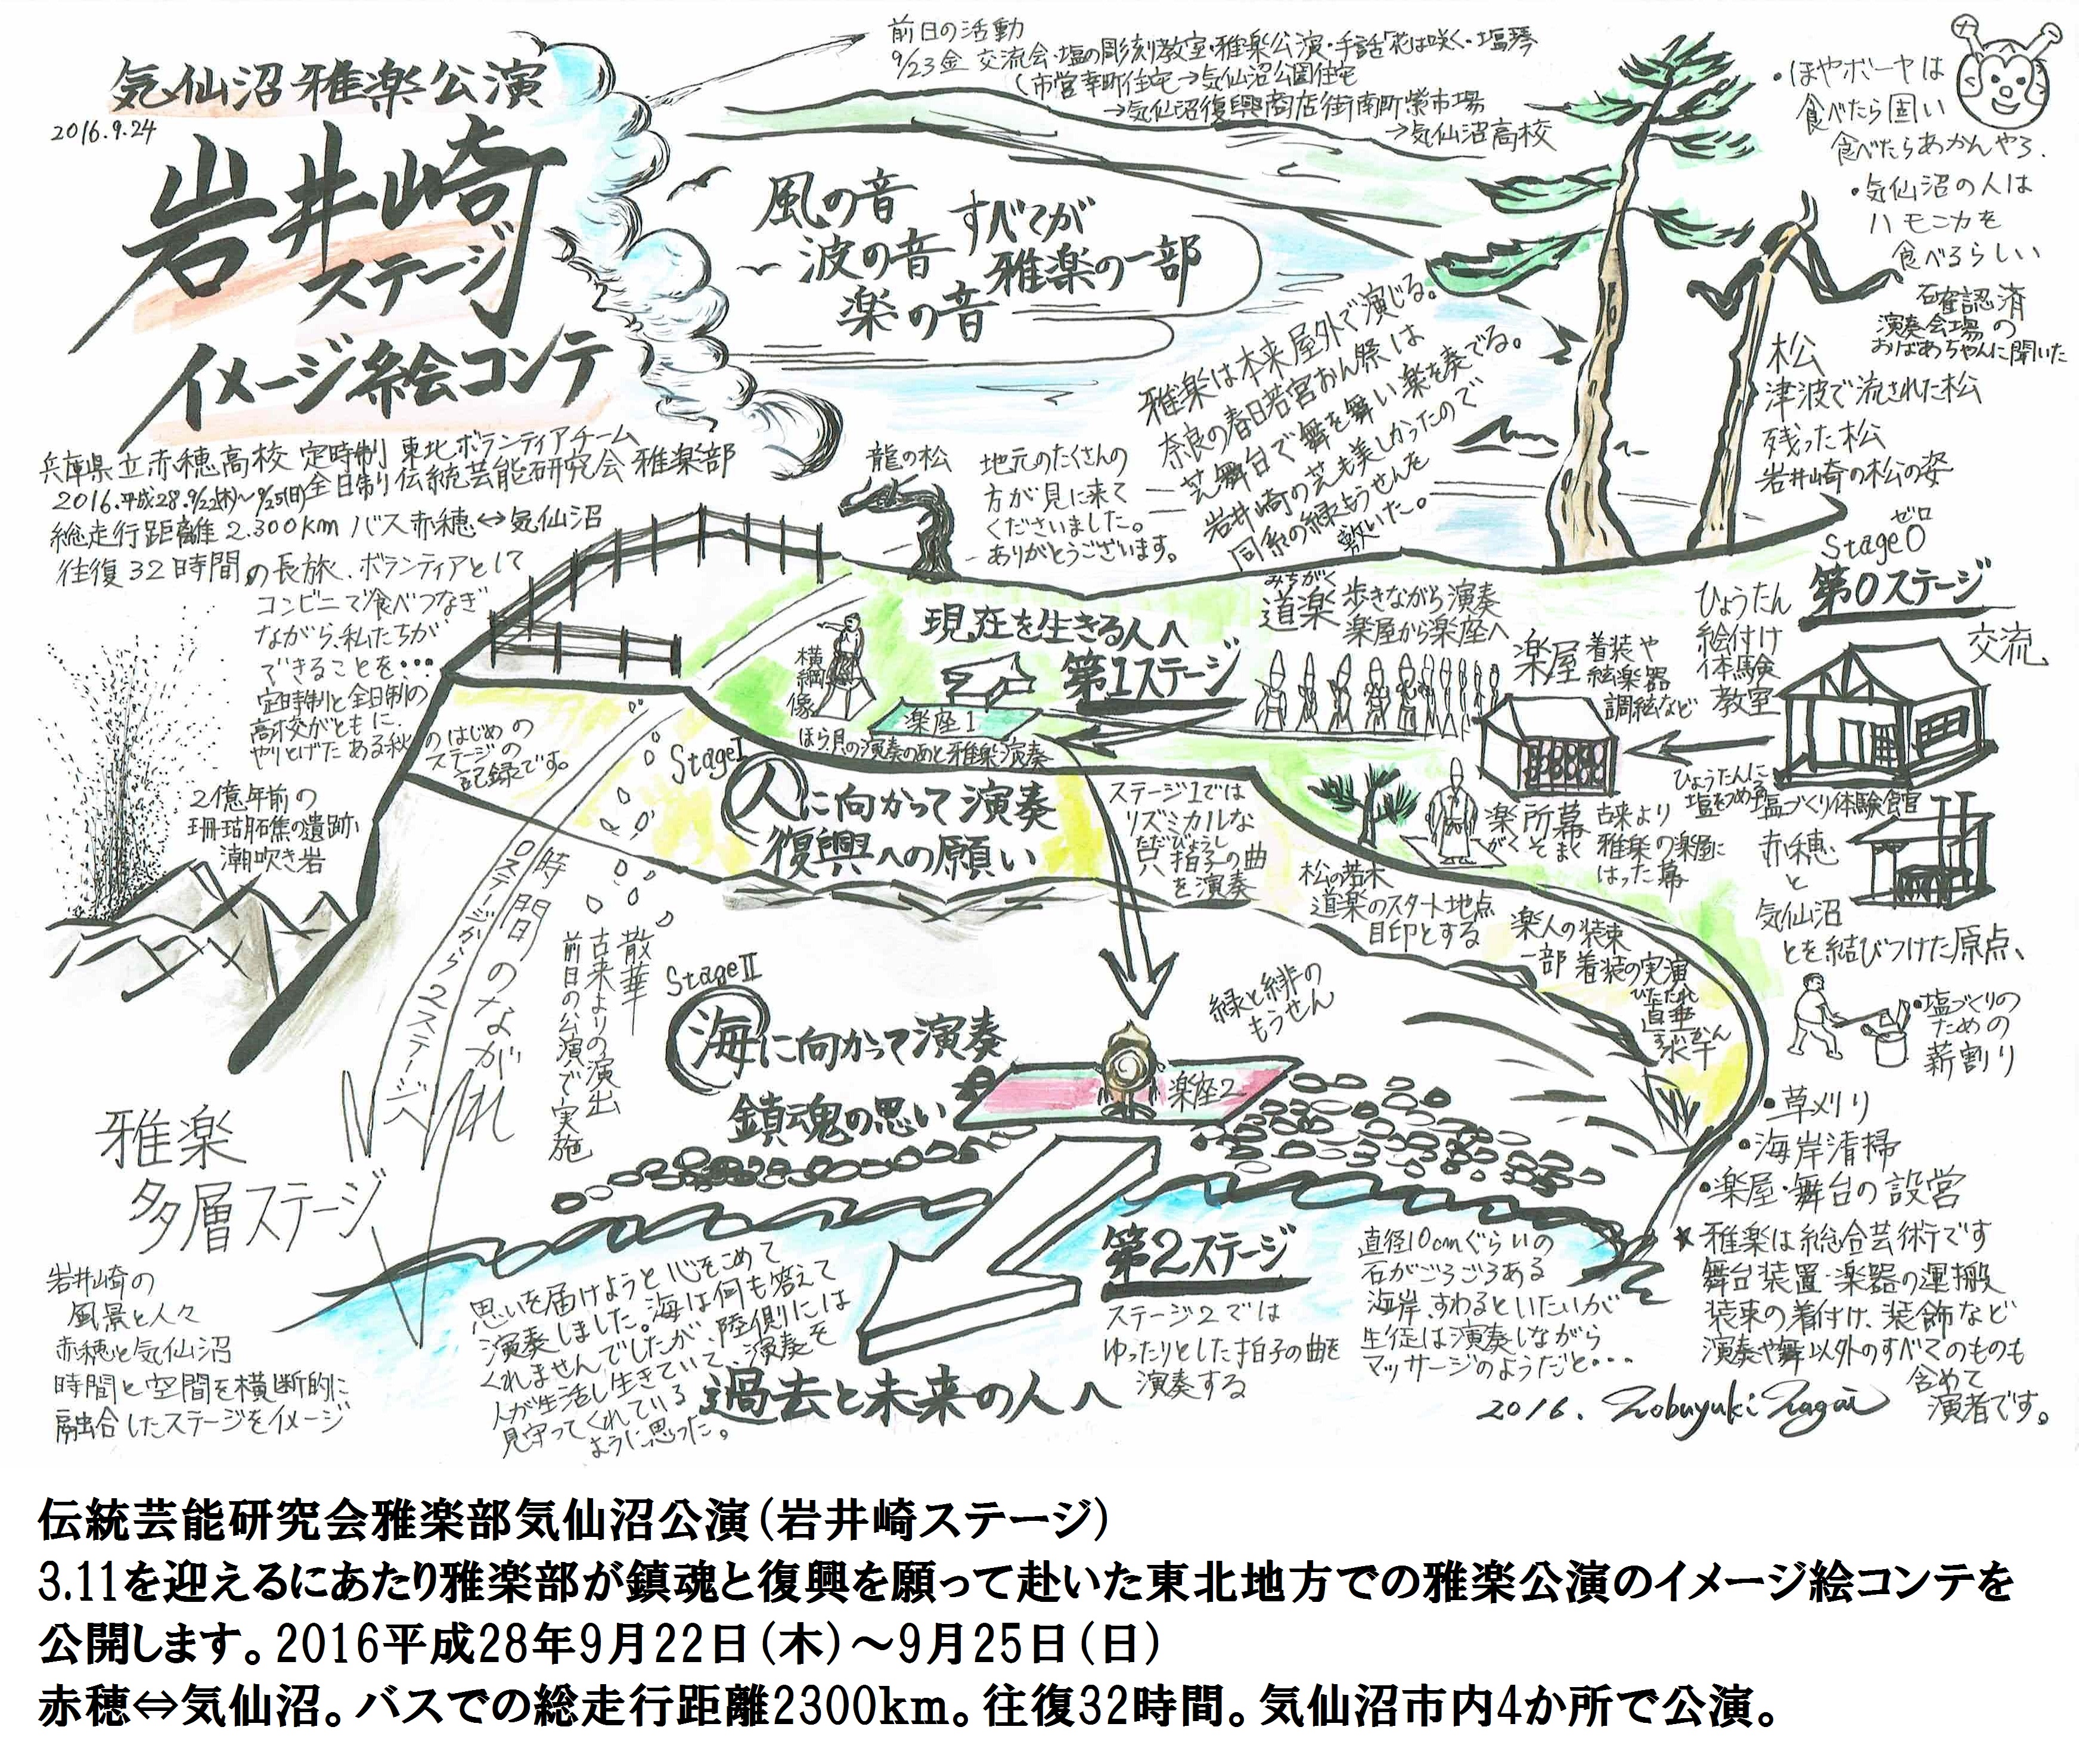 気仙沼雅楽公演
2016.9.24
岩井崎
ステージ
イメージ絵コンテ
兵庫県立赤穂高校 定時制 東北ボランティアチーム
全日制 伝統芸能研究会 雅楽部
2016.平成28.9/22(木)~9/25(日)
総走行距離 2.300km バス赤穂⇔気仙沼
往復32時間の長旅、ボランティアとして
コンビニで食べつなぎ
ながら、私たちが
できることを・・・
定時制と全日制の
高校がともに
やりとげたある秋のはじめの
ステージの
記録です。
前日の活動
9/23金 交流会・塩の彫刻教室・雅楽公演・手話「花は咲く」・塩琴
(市営幸町住宅→気仙沼公園住宅
→気仙沼復興商店街南町紫市場
→気仙沼高校
風の音
波の音
楽の音
すべてが
雅楽の一部
・ほやボーヤは
食べたら固い
食べたらあかんやろ.
・気仙沼の人は
ハモニカを
食べるらしい
確認済
演奏会場の
おばあちゃんに聞いた
松
津波で流された松
残った松
岩井崎の松の姿
雅楽は本来屋外で演じる。
奈良の春日若宮おん祭は
芝舞台で舞を舞い楽を奏でる。
岩井崎の芝も美しかったので
同系の緑もうせんを
敷いた。
龍の松
地元のたくさんの
方が見に来て
くださいました。
ありがとうございます。
ゼロ
Stage0
第0ステージ
交流
ひょうたん
絵付け
体験
教室
ひょうたんに
塩をつめる
塩づくり体験館
楽屋
着装や
絵楽器
調絃など
みちがく
道楽
歩きながら演奏
楽屋から楽座へ
現在を生きる人へ
第1ステージ
横綱像
楽座1
ほら貝の演奏のあと雅楽演奏
StageⅠ
人に向かって演奏
復興への願い
ステージ1では
リズミカルな
ただびょうし
只拍子の曲
を演奏
松の若木
道楽のスタート地点
目印とする
楽所幕
がくそまく
古来より
雅楽の楽屋に
はった幕
楽人の装束
一部着装の実演
ひたたれ
直垂
すいかん
水干
赤穂
と
気仙沼
とを結びつけた原点、
・塩づくりの
ための
薪割り
・草刈り
・海岸清掃
・楽屋・舞台の設営
★雅楽は総合芸術です
舞台装置・楽器の運搬
装束の着付け、装飾など
演奏や舞以外のすべてのものも
含めて
演者です。
2億年前の
珊瑚礁の遺跡
潮吹き岩
時間のながれ
0ステージから2ステージへ
散華
古来よりの演出
前日の公演で実施
StageⅡ
海に向かって演奏
鎮魂の思い
緑と緋の
もうせん
楽座2
第2ステージ
ステージ2では
ゆったりとした拍子の曲を
演奏する
直径10cmぐらいの
石がごろごろある
海岸、すわるといたいが
生徒は演奏しながら
マッサージのようだと・・・
思いを届けようと心をこめて
演奏しました。海は何も答えて
くれませんでしたが、陸側には
人が生活し生きていて、演奏を
見守ってくれている
ように思った。
過去と未来の人へ
雅楽
多層ステージ
岩井崎の
風景と人々
赤穂と気仙沼
時間と空間を横断的に
融合したステージをイメージ
2016. Nobuyuki Nagai
伝統芸能研究会雅楽部気仙沼公演(岩井崎ステージ)
3.11を迎えるにあたり雅楽部が鎮魂と復興を願って赴いた東北地方での雅楽公演のイメージ絵コンテを
公開します。2016平成28年9月22日(木)~9月25日(日)
赤穂⇔気仙沼。バスでの総走行距離2300km。往復32時間。気仙沼市内4か所で公演。